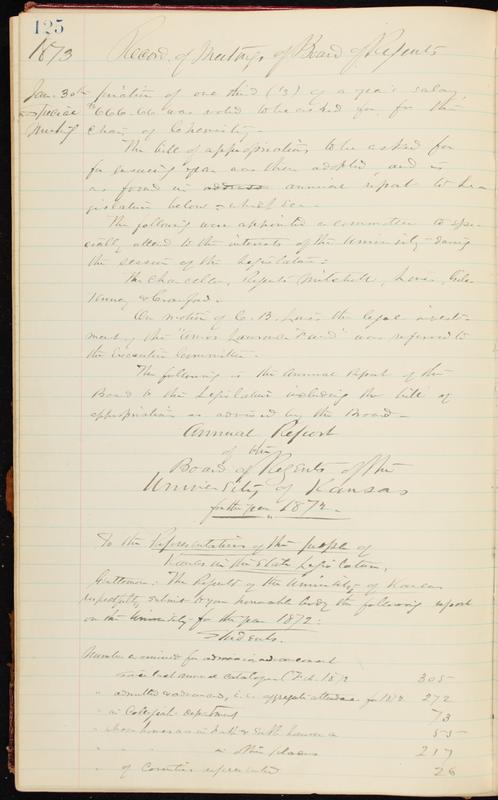 125
1873 Record of Meetings of Board of Regents
Jan. 30th priation of one third (1/3) of a year's salary
Special $666.66 was voted to be asked for for the
Meeting chair of Chemistry.
The bill of appropriations to be asked for
for ensuing year was then adopted, and is
as found in annual report to Le-
gislature below - which see -
The following were appointed a committee to spe-
cially attend to the interests of the University during
the session of the Legislature:
The Chancellor, Regents Mitchell,
Kenney & Crawford.
On motion of C. B. the legal invest-
ment of the "Amos Lawrence Fund" was referred to
the Executive Committee -
The following is the Annual Report of the
Board to the Legislature including the bill of
appropriation as advised by the Board -
Annual Report
of the
Board of Regents of the
University of Kansas
for the year 1872.
To the Representatives of the people of
Kansas in the State Legislature,
Gentlemen: The Regents of the University of Kansas
respectfully submit to your honorable body the following report
on the University for the year 1872:
Students.
Number examined for admission
since last annual catalogue (Feb. 1872 305
" admitted aggregate attendance for 1872 272
" in Collegiate department 73
" whose homes are in 55
" " " in other places 217
" of Counties represented 26